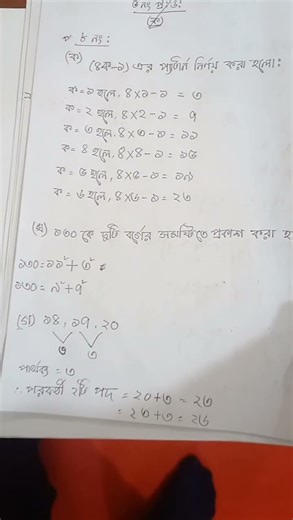 (ক)
৪ নং:
(ক) (৪ক-১) এর প্যাটার্ন নির্ণয় করা হলো:
ক=১ হলে, ৪×১-১ = ৩
ক=২ হলে, ৪×২-১ = ৭
ক=৩ হলে, ৪×৩-১ = ১১
ক=৪ হলে, ৪×৪-১ = ১৫
ক=৫ হলে, ৪×৫-১ = ১৯
ক=৬ হলে, ৪×৬-১ = ২৩
(খ) ১৩০ কে দুটি বর্গের সমষ্টিতে প্রকাশ করা হ
১৩০=১১²+৩²
১৩০=৯²+৭²
(গ) ১৪, ১৭, ২০
৩ ৩
পার্থক্য = ৩
∴ পরবর্তী ২টি পদ = ২০+৩ = ২৩
= ২৩+৩ = ২৬